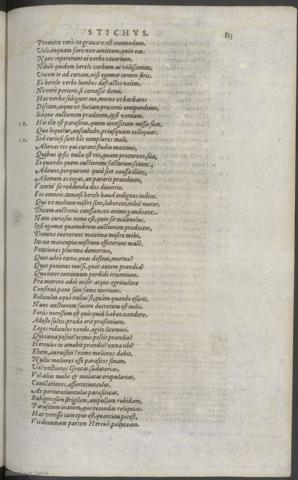 STICHVS. 813
Promitte verò: ne grauare: est commodum.
Volo, inquam fieri: non amittam, quin eas.
Nunc repererunt ei verbo vicarium.
Nihili quidem hercle verbum ac vilissimum,
Vocem te ad cœnam, nisi egomet cœnem foris.
Ei hercle verbo lumbos defractos velim,
Ne verè perierit, si cœnassit domi:
Hæc verba subigunt me, mores vt barbaros
Discam, atque vt faciam præconis compendium,
Itáque auctionem prædicem, ipse vt veneam.
12. Hic ille est parasitus, quem arcessitum missa sum.
Quæ loquitur, auscultabo, priùsquam colloquar.
13. Sed curiosi sunt hîc complures mali,
Alienas res qui curant studio maximo,
Quibus ipsis nulla est res, quam procurent, sua,
Ii quando quem auctionem facturum sciunt,
Adeunt, perquirunt quid siet caussæ illico,
Alienum æs cogat, an pararit prædium,
Vxorín' sit reddenda dos diuortio.
Eos omneis, tametsi hercle haud indignos iudico,
Qui vt multum miseri sint, laborent, nihil moror.
Dicam auctionis caussam, vt animo gaudeant.
Nam curiosus nemo est, quin sit maleuolus.
Ipse egomet quamobrem auctionem prædicem,
Damna euenerunt maxima misero mihi,
Ita me mancupia miserum affecerunt malè,
Potationes plurimæ demortuæ,
Quot adeò cœnæ, quas defleui, mortuæ?
Quot potiones mulsi, quot autem prandia?
Quæ inter continuum perdidi triennium.
Præ mœrore adeò miser atque ægritudine
Consenui, penè sum fame mortuus.
Ridiculus æquè nullus est, quàm quando esurit.
Nunc auctionem facere decretum est mihi.
Foràs necessum est quicquid habeo, vendere.
Adeste sultis, præda erit præsentium.
Logos ridiculos vendo, agite licemini.
Qui cœna poscit? ecqui poscit prandio?
Hercules te amabit prandio? cœna tibi?
Ehem, annuistin'? nemo meliores dabit,
Nulli meliores esse parasito sinam.
Vel vnctiones Græcas sudatorias,
Vel alias malis & malacas crapularias,
Cauillationes, assentatiunculas,
Ac periuratiunculas parasiticas,
Rubiginosam strigilem, ampullam rubidam,
Parasitum inanem, quo recondas reliquias.
Hæc venisse iam opus est, quantum potest,
Vt decumam partem Herculi polluceam.